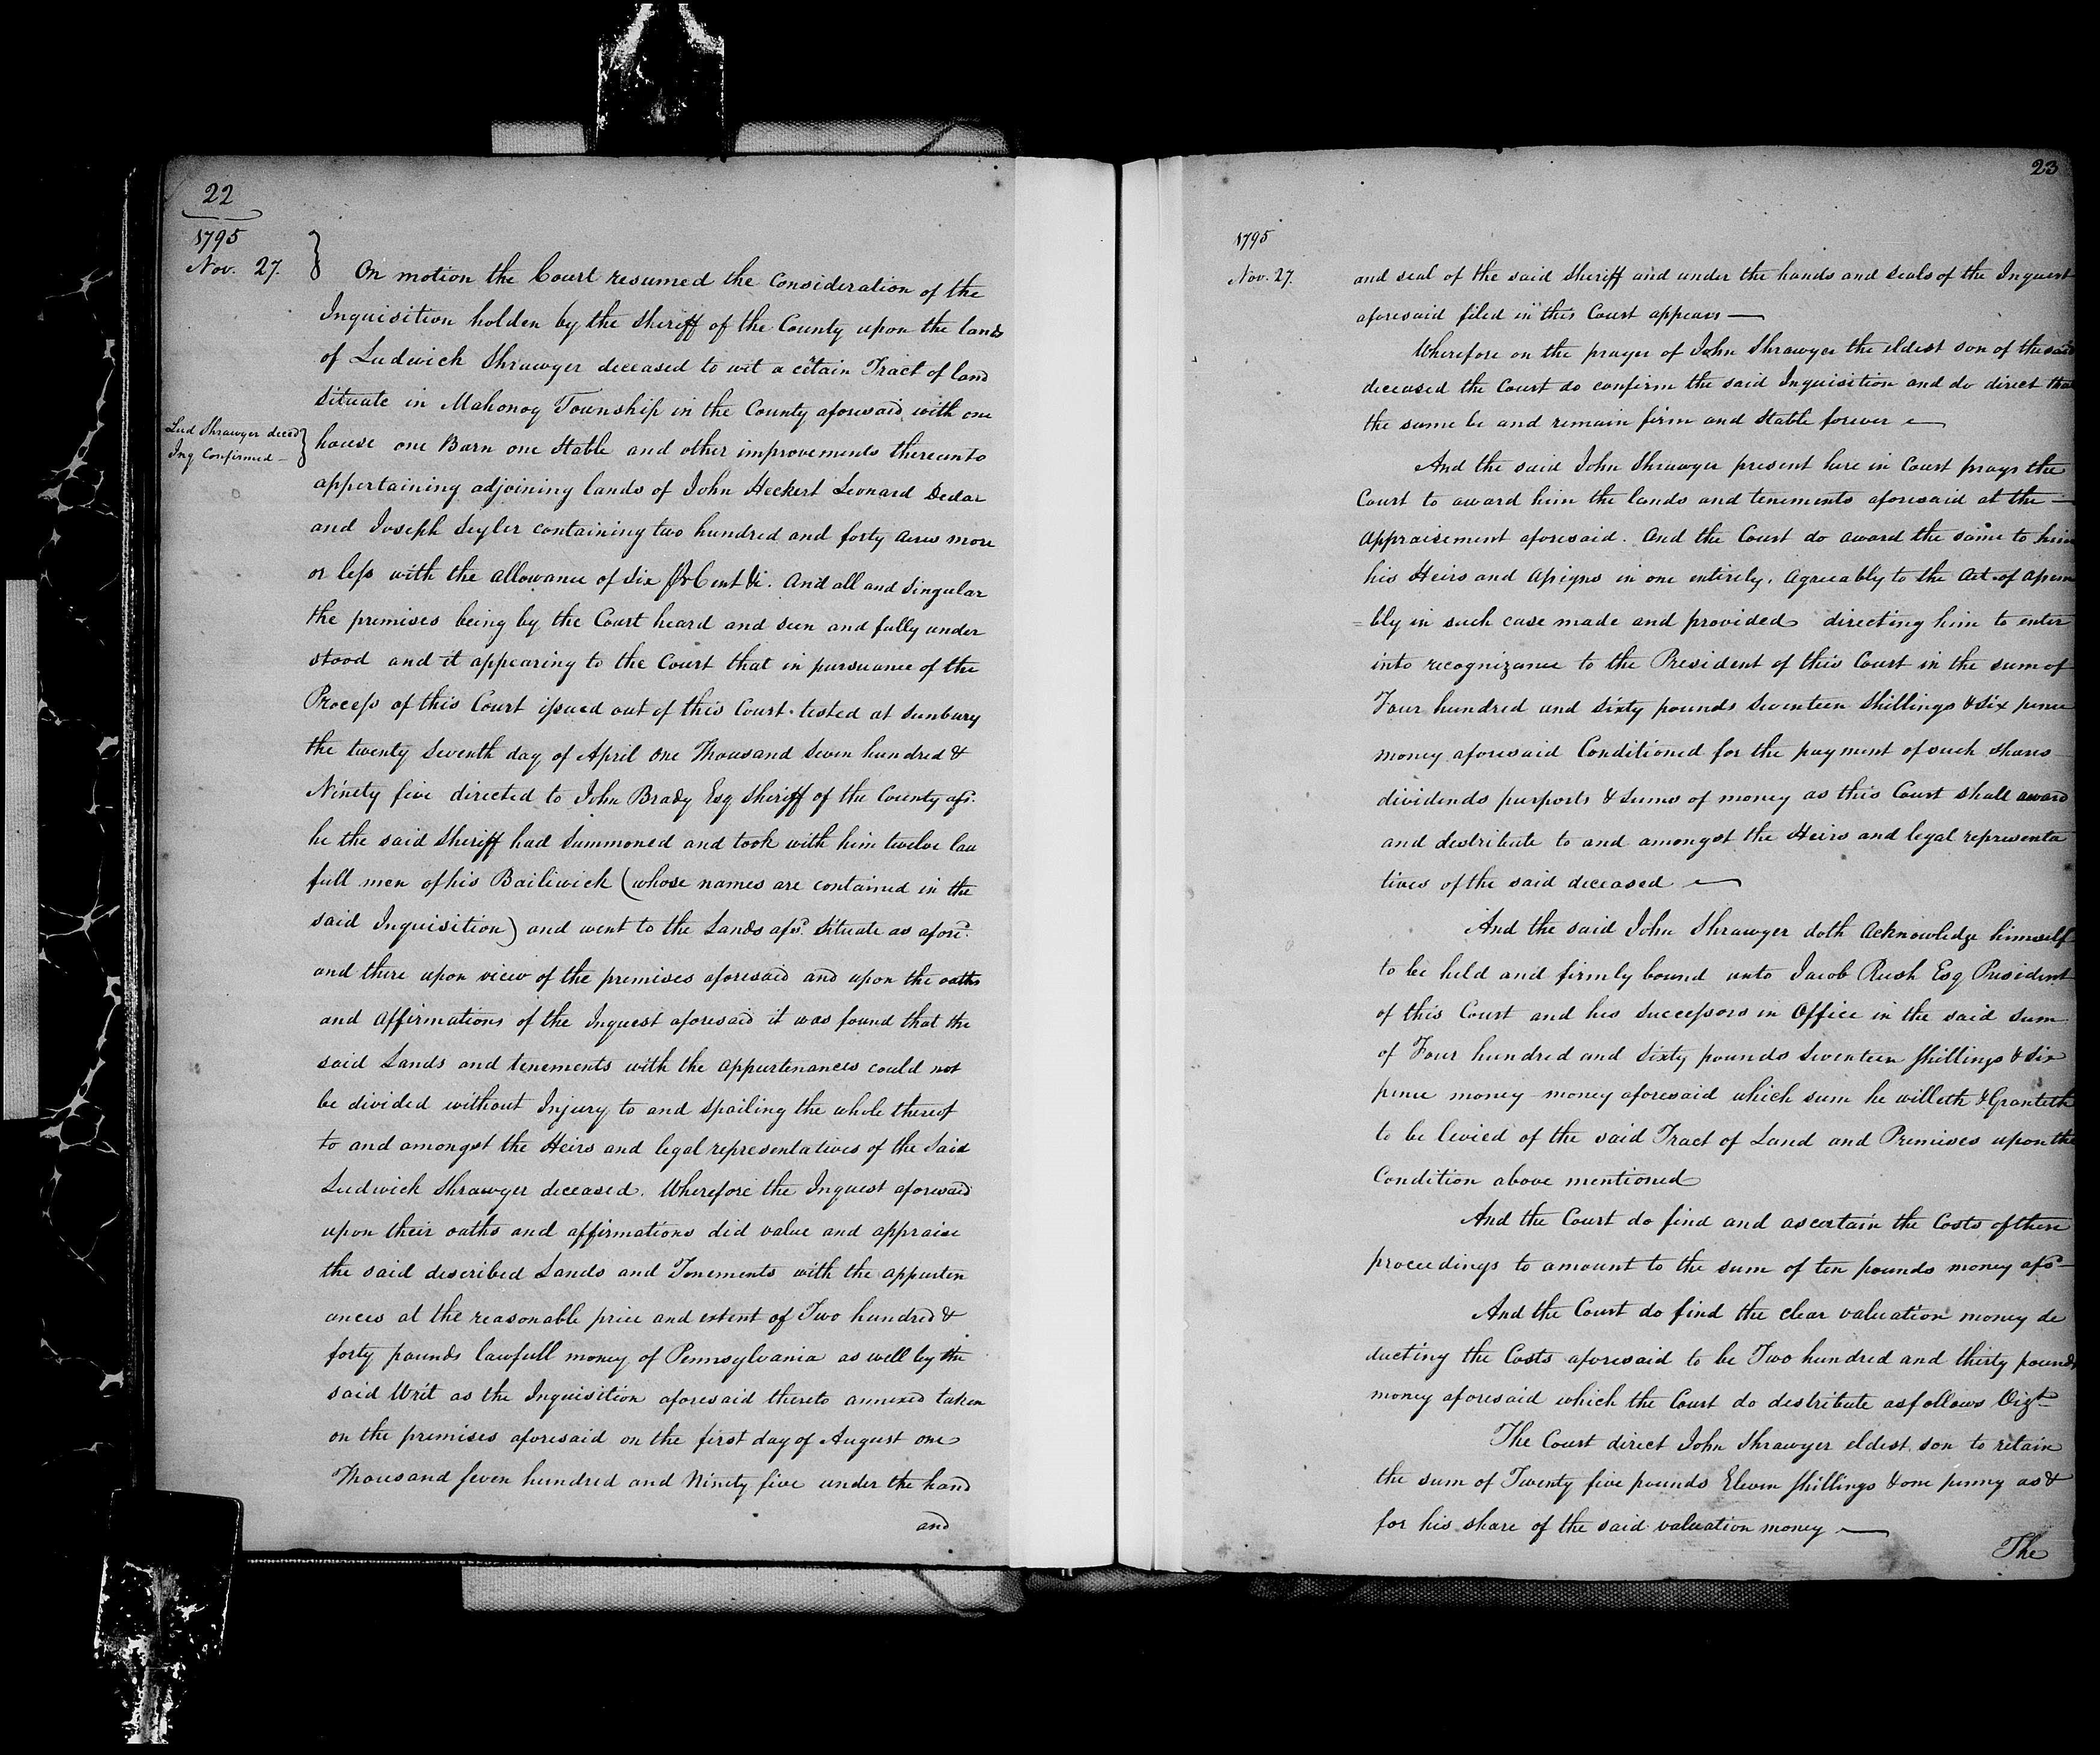 22
1795
Nov. 27.
On motion the Court resumed the Consideration of the
Inquisition holden by the Sheriff of the County upon the lands
of Ludwich Shrawyer deceased to wit a cetain Tract of land
Situate in Mahonoy Township in the County aforesaid with one
Lud Shrawyer decd
Inq Confirmed —
house one Barn one Stable and other improvements thereunto
appertaining adjoining lands of John Heckert Leonard Dedar
and Joseph Seyler containing two hundred and forty acres more
or less with the allowance of Six Pr Cent &c. And all and Singular
the premises being by the Court heard and seen and fully under
stood and it appearing to the Court that in pursuance of the
Process of this Court issued out of this Court tested at Sunbury
the twenty Seventh day of April One Thousand Seven hundred &
Ninety five directed to John Brady Esq Sheriff of the County afs.
he the said Sheriff had Summoned and took with him twelve law
full men of his Bailiwick (whose names are contained in the
said Inquisition) and went to the Lands afsd. Situate as afored.
and there upon view of the premises aforesaid and upon the oaths
and Affirmations of the Inquest aforesaid it was found that the
said Lands and tenements with the appurtenances could not
be divided without Injury to and Spoiling the whole thereof
to and amongst the Heirs and legal representatives of the Said
Ludwick Shrawyer deceased. Wherefore the Inquest aforesaid
upon their oaths and affirmations did value and appraise
the said described Lands and Tenements with the appurten
ances at the reasonable price and extent of Two hundred &
forty pounds lawfull money of Pennsylvania as well by the
said Writ as the Inquisition aforesaid thereto annexed taken
on the premises aforesaid on the first day of August one
Thousand seven hundred and Ninety five under the hand
and
23
1795
Nov. 27.
and seal of the said Sheriff and under the hands and Seals of the Inquest
aforesaid filed in this Court appears —
Wherefore on the prayer of John Shrawyer the eldest son of the said
deceased the Court do confirm the said Inquisition and do direct that
the same be and remain firm and Stable forever —
And the said John Shrawyer present here in Court prays the
Court to award him the lands and tenements aforesaid at the —
Appraisement aforesaid. And the Court do award the same to him
his Heirs and Assigns in one entirely. Agreeably to the Act of Assem
=bly in such case made and provided directing him to enter
into recognizance to the President of this Court in the sum of
Four hundred and Sixty pounds Seventeen Shillings & Six pence
money aforesaid Conditioned for the payment of such shares
dividends purports & Sums of money as this Court shall award
and destribute to and amongst the Heirs and legal representa
tives of the said deceased —
And the said John Shrawyer doth Acknowledge himself
to be held and firmly bound unto Jacob Rush Esq President
of this Court and his Successors in Office in the said Sum
of Four hundred and Sixty pounds Seventeen Shillings & Six
pence money - money aforesaid which sum he willeth & Granteth
to be levied of the said Tract of Land and Premises upon the
Condition above mentioned
And the Court do find and ascertain the Costs of these
proceedings to amount to the sum of ten pounds money afsd —
And the Court do find the clear valuation money de
ducting the Costs aforesaid to be Two hundred and thirty pounds
money aforesaid which the Court do destribute as follows Vizt —
The Court direct John Shrawyer eldest son to retain
the sum of Twenty five pounds Eleven Shillings & one penny as &
for his share of the said valuation money —
The